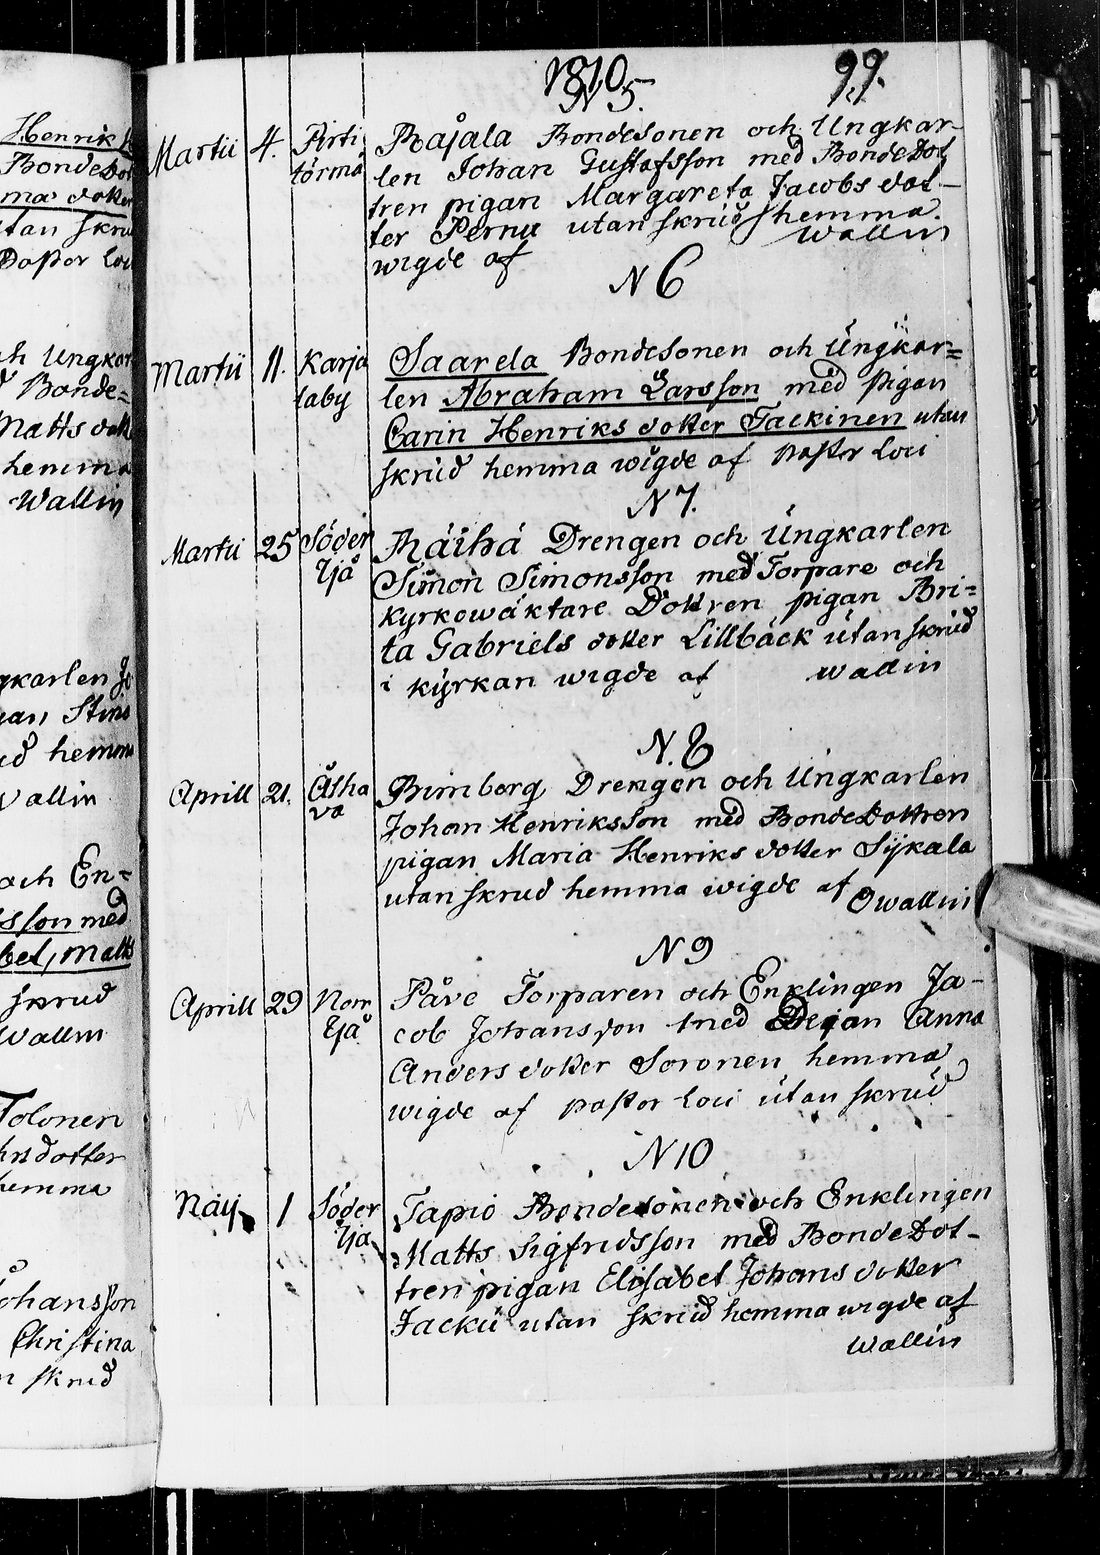 Henrik
Bonde Dot
ma dotter
utan skru
Pastor Loui
och Ungkar
Bonde=
Matts dott
hemma
Wallin
gkarlen Jo
an Stina
ud hemma
Wallin
och En=
sson med
bet, Matts
skrud
Wallin
Tolonen
hrsdotter
hemma
ohansson
Christina
n skrud
1810 99.
N 5.
Martii 4. Pirti törmä Rajala Bondesonen och Ungkar-
len Johan Gustafsson med Bonde Dot
tren pigan Margareta Jacobs dot-
ter Pernu utan skrud hemma.
wigde af Wallin
N 6
Martii 11. Karja laby Saarela Bondesonen och Ungkar=
len Abraham Larsson med Pigan
Carin Henriks dotter Tackinen utan
skrud hemma wigde af Pastor Loui
N 7.
Martii 25 Söder Yjå Räihä Drengen och Ungkarlen
Simon Simonsson med Torpare och
Kyrkowäktare Dottren pigan Bri=
ta Gabriels dotter Lillbäck utan skrud
i kyrkan wigde af Wallin
N. 8
Aprill 21. Åsha va Brinborg Drengen och Ungkarlen
Johan Henriksson med Bonde Dottren
pigan Maria Henriks dotter Sÿkala
utan skrud hemma wigde af O Wallin
N 9
Aprill 29 Norr Yjå Påve Torparen och Enklingen Ja-
cob Johansson med Pigan Anna
Anders dotter Soronen hemma
wigde af Pastor Loui utan skrud
N 10
Maij 1 Söder Yjå Tapio Bondesonen och Enklingen
Matts Sigfridsson med Bonde Dot-
tren pigan Elisabet Johans dotter
Jacku utan skrud hemma wigde af
Wallin